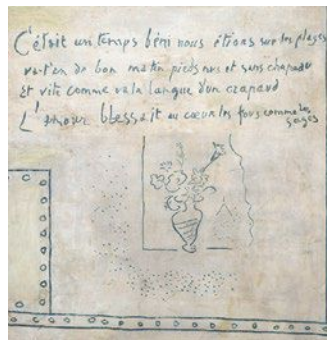 C'était un temps béni nous étions sur les plages
va-t'en de bon matin pieds nus et sans chapeau
Et vite comme va la langue d'un crapaud
L'amour blessait au cœur les fous comme les sages